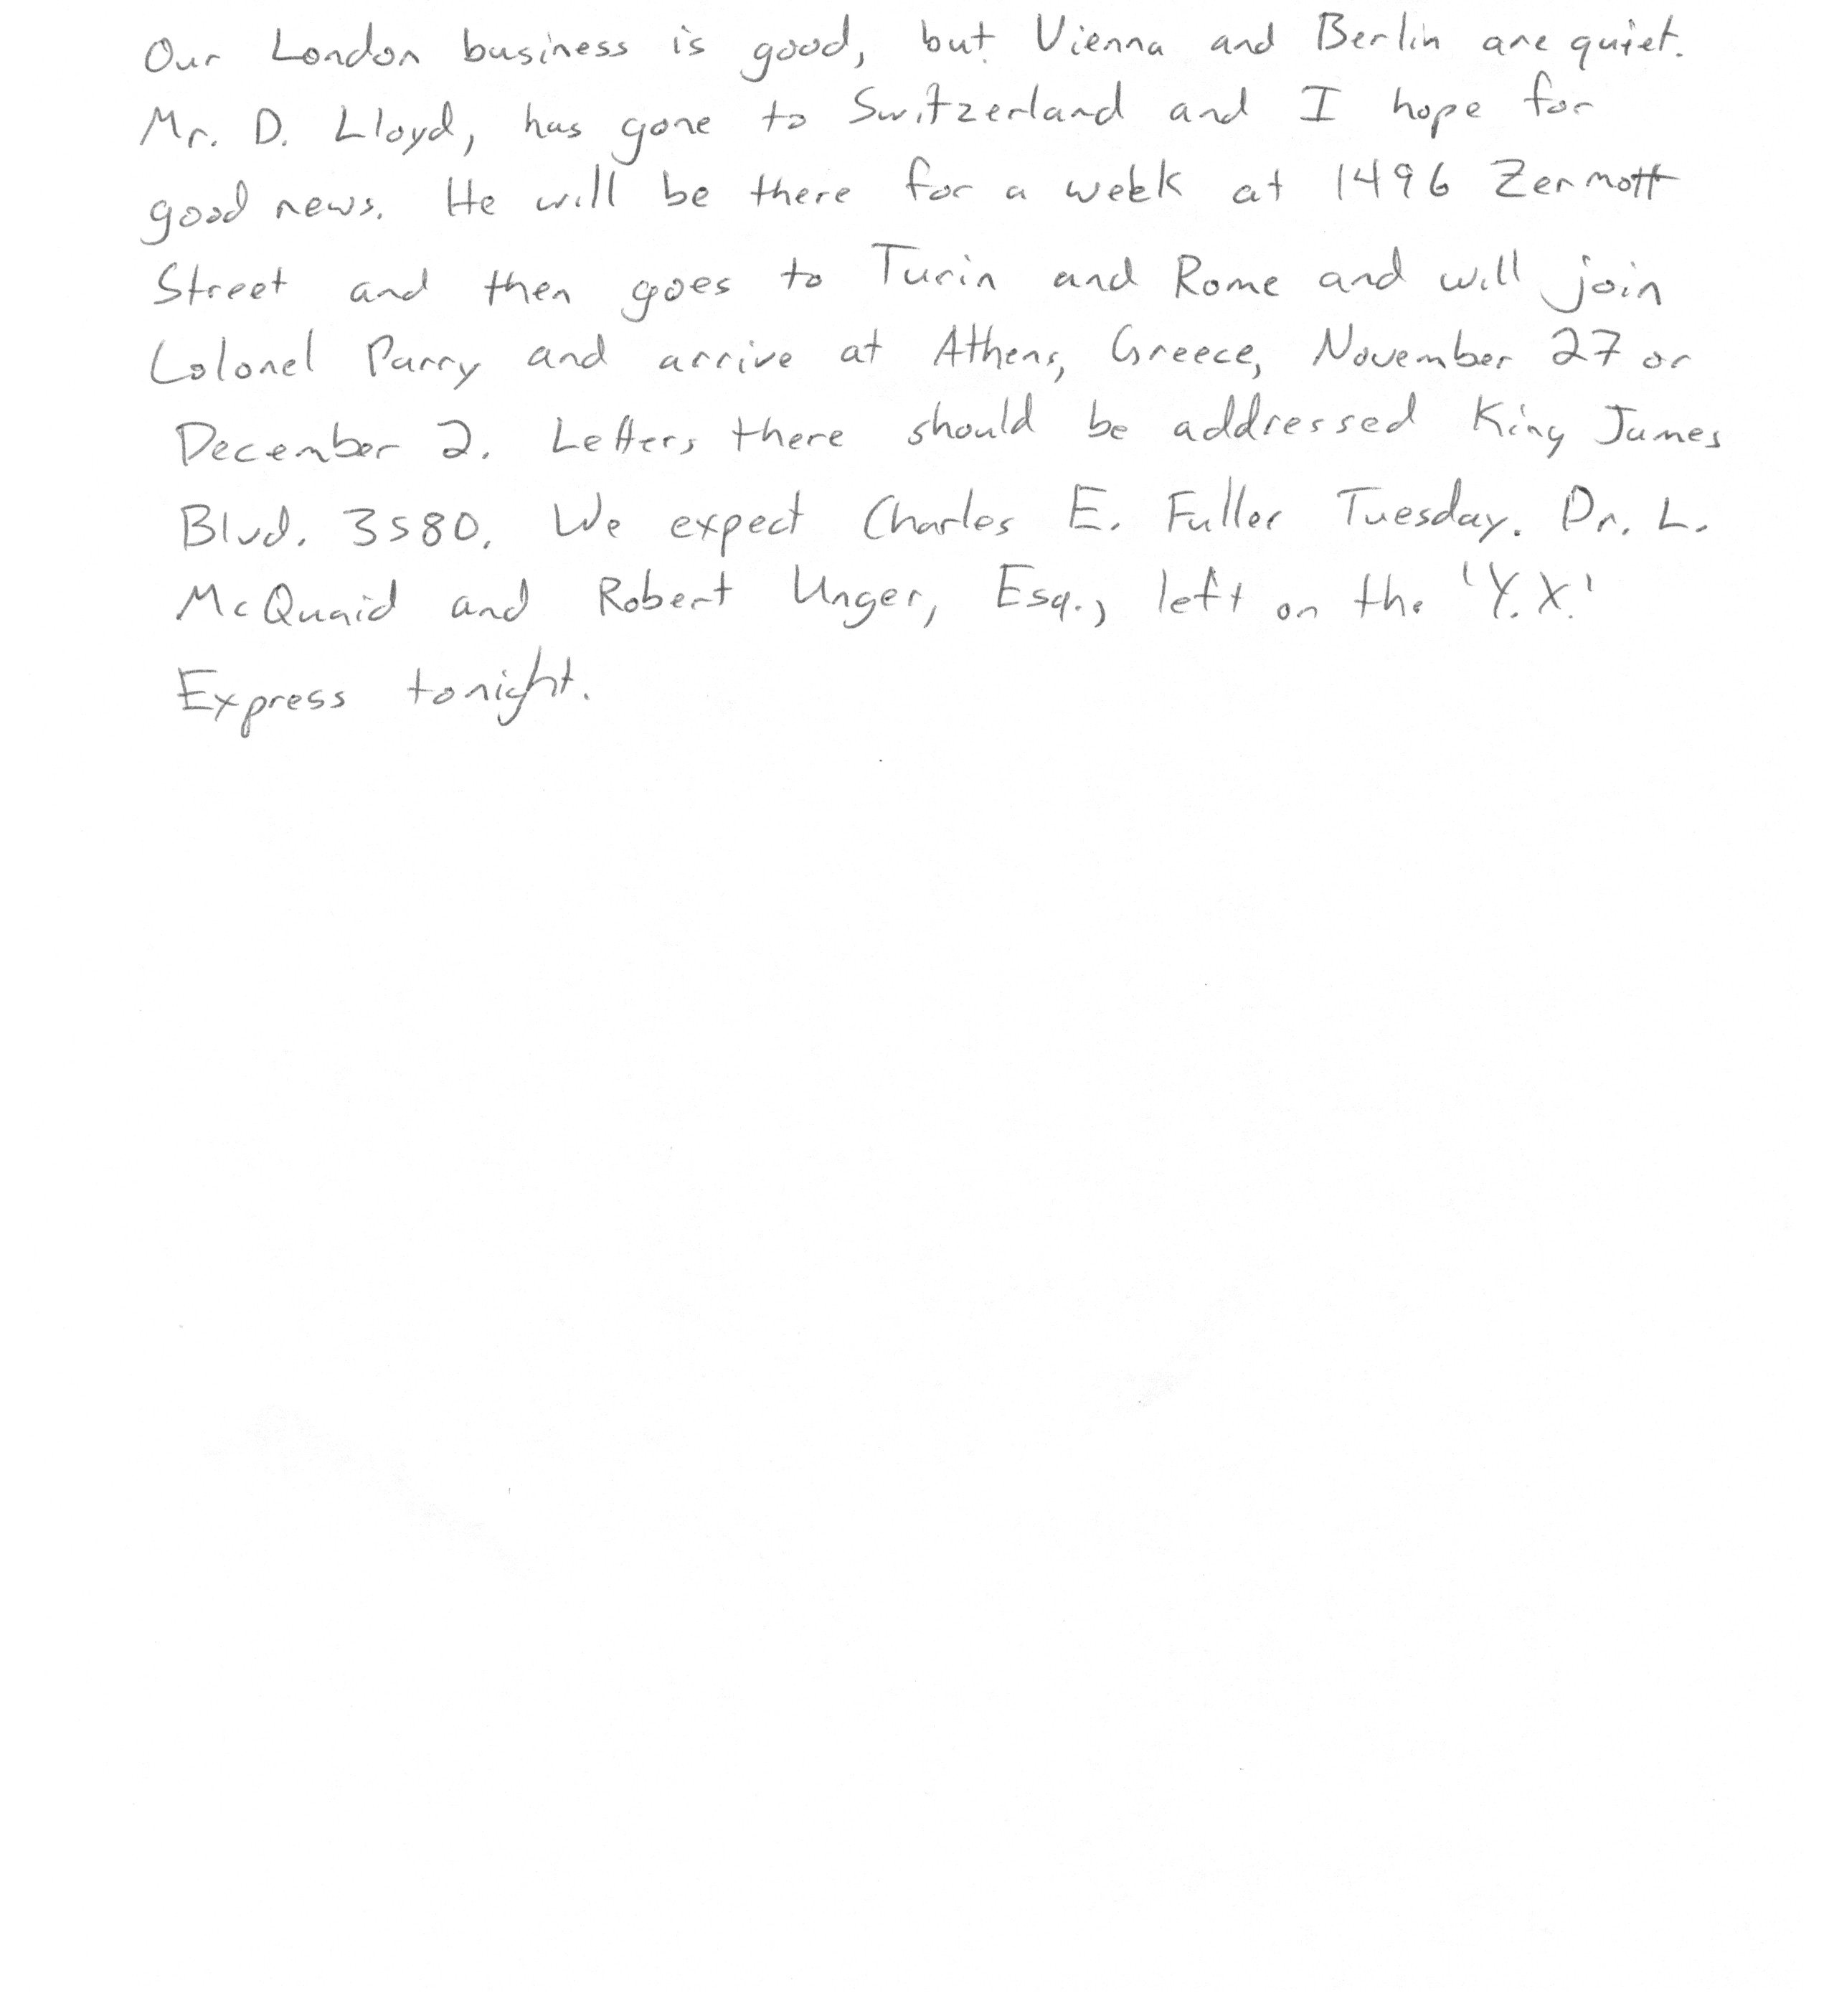 Our London business is good, but Vienna and Berlin are quiet.
Mr. D. Lloyd, has gone to Switzerland and I hope for
good news. He will be there for a week at 1496 Zermott
Street and then goes to Turin and Rome and will join
Colonel Parry and arrive at Athens, Greece, November 27 or
December 2. Letters there should be addressed King James
Blvd. 3580. We expect Charles E. Fuller Tuesday. Dr. L.
McQuaid and Robert Unger, Esq., left on the 'Y.X.'
Express tonight.